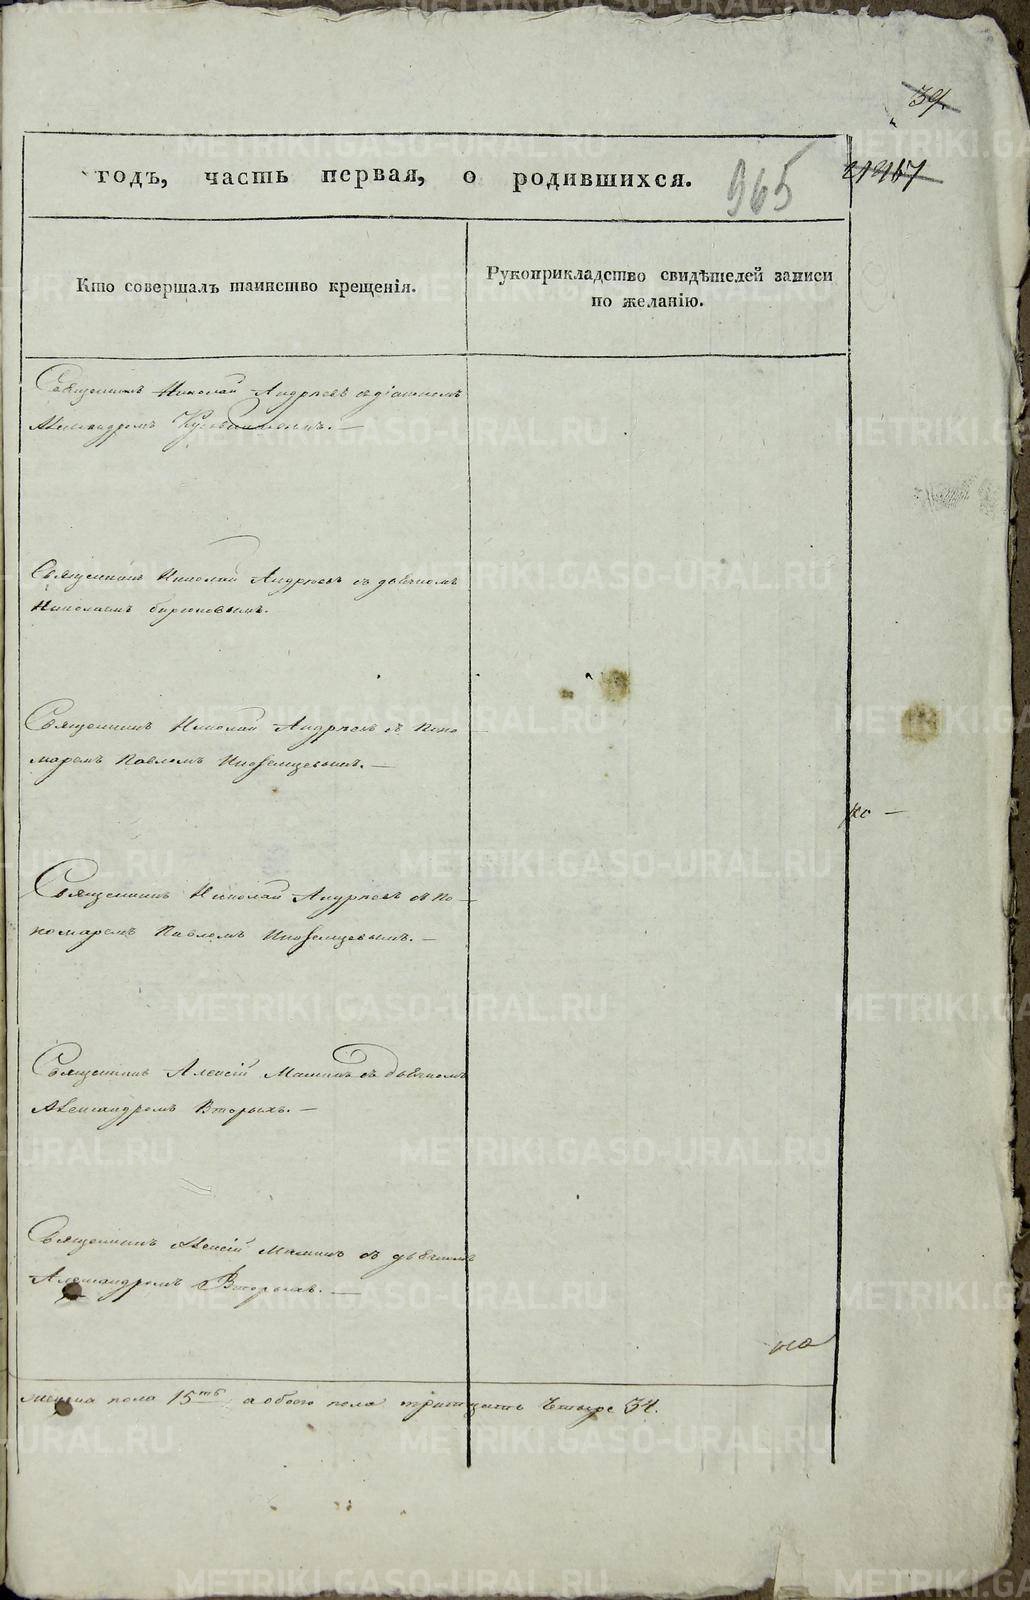 39.
годъ, часть первая, о родившихся.
965
Кто совершалъ таинство крещенія.
Рукоприкладство свидѣтелей записи
по желанію.
Священникъ Николай Андреевъ съ діакономъ
Александромъ
Священникъ Николай Андреевъ съ дьячкомъ
Николаемъ Бирюковымъ.
Священникъ Николай Андреевъ съ Поно
маремъ Павломъ Иноземцевымъ. —
Священникъ Николай Андреевъ съ По—
номаремъ Павломъ Иноземцевымъ. —
Священникъ Алексій Маминъ съ дьячкомъ
Александромъ Вторыхъ. —
Священникъ Алексій Маминъ съ дьячкомъ
Александромъ Вторыхъ. —
пола 15ть, а обоего пола тритцать четыре 34.
METRIKI.GASO-URAL.RU